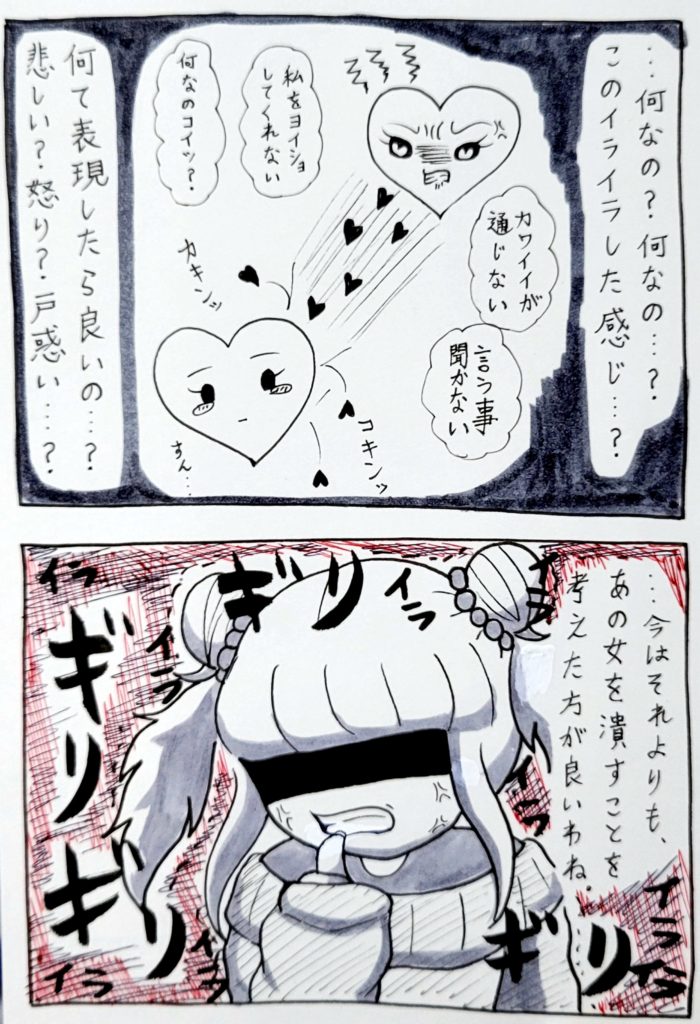 …何なの？何なの…？
このイライラした感じ…？
カワイイが
通じない
言う事
聞かない
私をヨイショ
してくれない
何なのコイツ？
カキンッ
コキンッ
すん…
何て表現したら良いの…？
悲しい？怒り？戸惑い…？
…今はそれよりも、
あの女を潰すことを
考えた方が良いわね。
イラ
イラ
ギリ
イラ
イラ
ギリ
イラ
ギリ
イラ
イラ
ギリ
イライラ